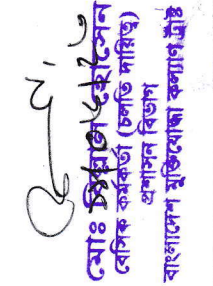 মোঃ হোসেন
বেসিক কর্মকর্তা (চলতি দায়িত্ব)
প্রশাসন বিভাগ
বাংলাদেশ মুক্তিযোদ্ধা কল্যাণ ট্রাস্ট